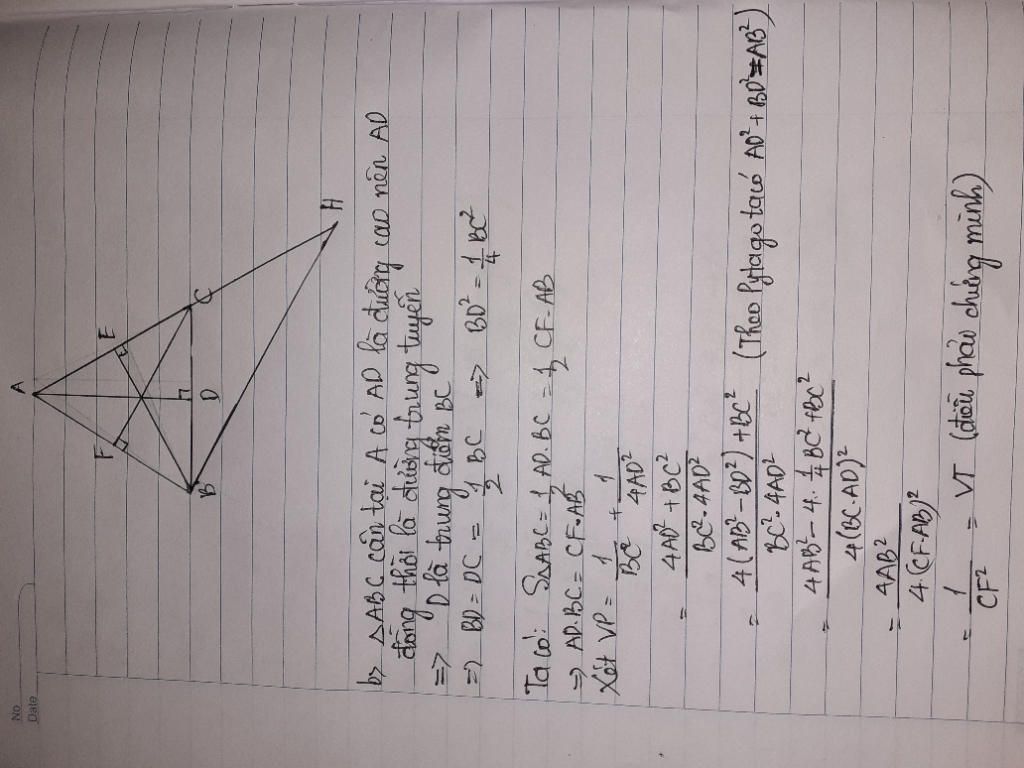 No
Date
A
F
E
B
D
C
H
b> △ABC cân tại A có AD là đường cao nên AD
đồng thời là đường trung tuyến
=> D là trung điểm BC
=> BD = DC = 1/2 BC => BD² = 1/4 BC²
Ta có: S△ABC = 1/2 AD.BC = 1/2 CF.AB
=> AD.BC = CF.AB
Xét VP = 1/BC² + 1/4AD²
= (4AD² + BC²)/(BC².4AD²)
= (4(AB² - BD²) + BC²)/(BC².4AD²) (Theo Pytago ta có AD² + BD² = AB²)
= (4AB² - 4.1/4 BC² + BC²)/(4(BC.AD)²)
= 4AB²/(4(CF.AB)²)
= 1/CF² = VT (điều phải chứng minh)